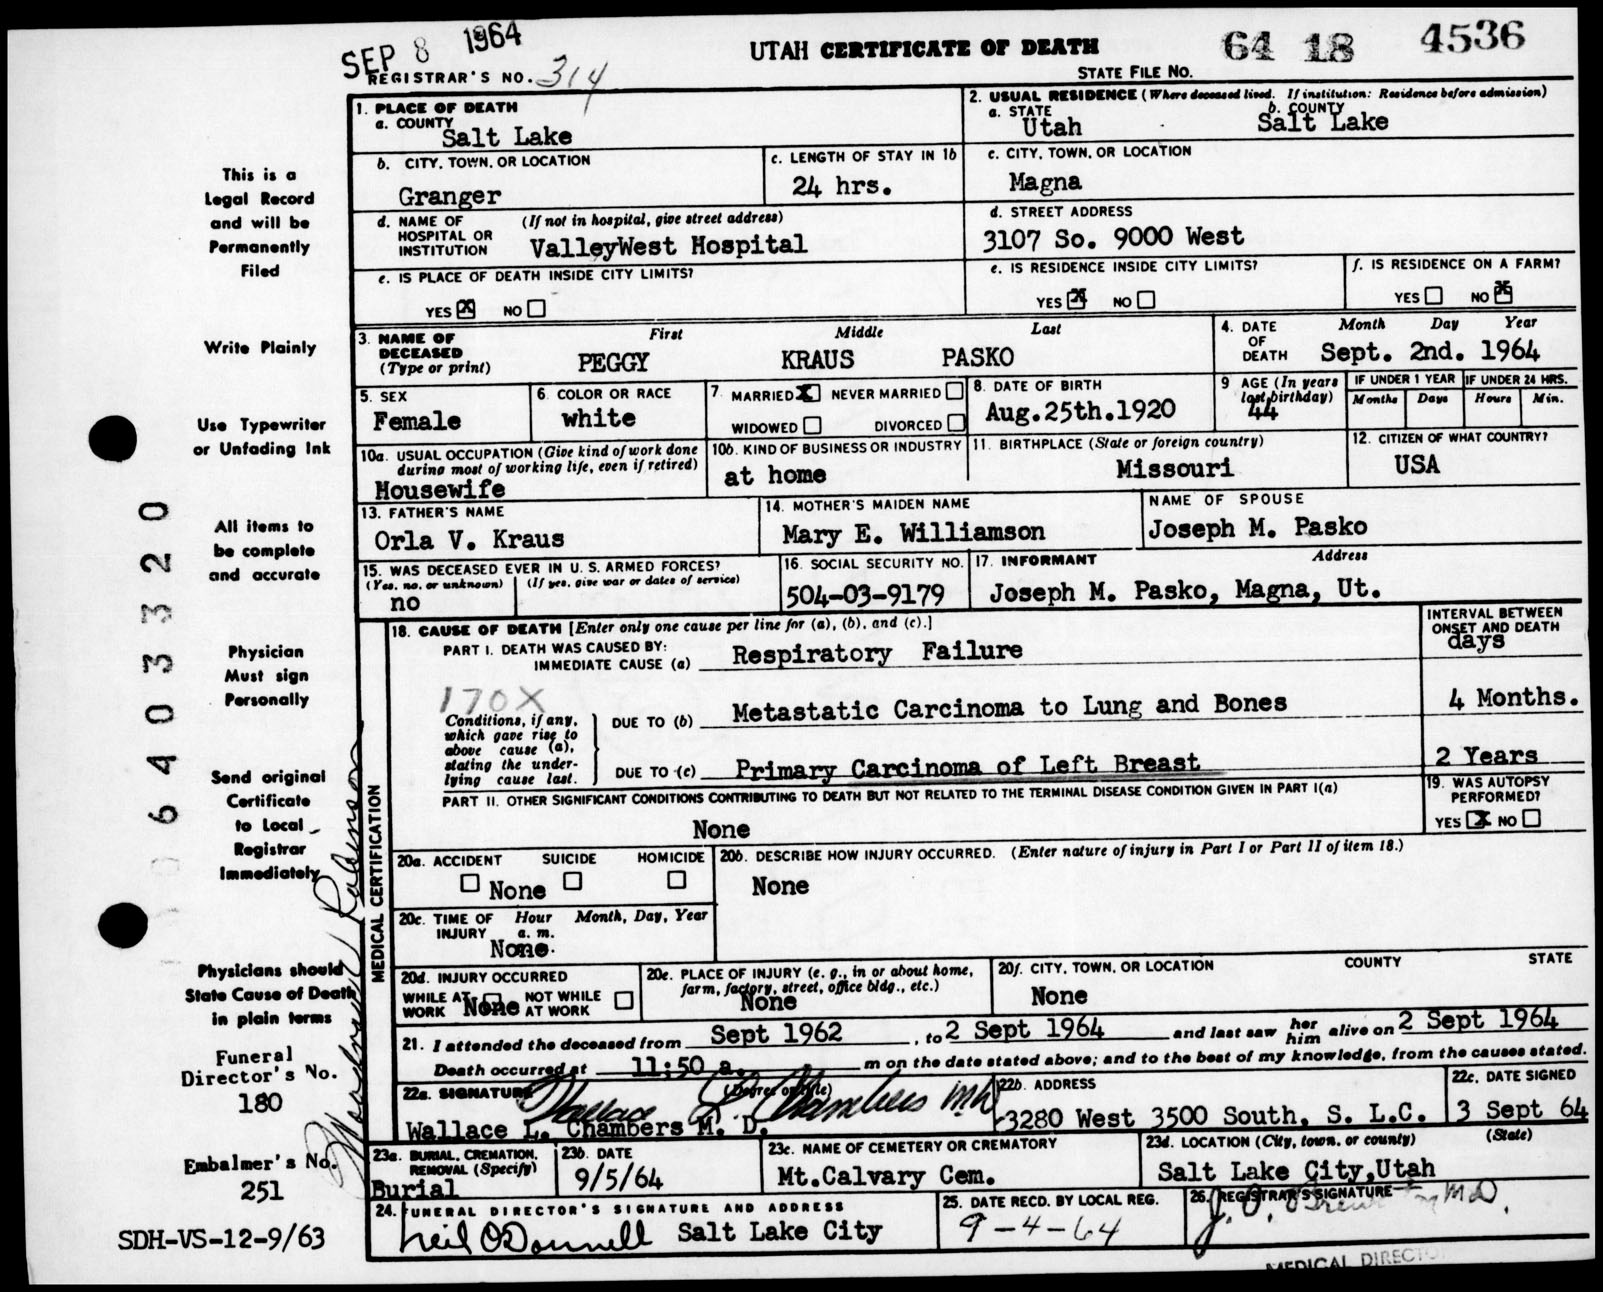 SEP 8 1964
UTAH CERTIFICATE OF DEATH
64 18 4536
REGISTRAR'S NO. 314
STATE FILE NO.
1. PLACE OF DEATH
a. COUNTY
Salt Lake
2. USUAL RESIDENCE (Where deceased lived. If institution: Residence before admission)
a. STATE b. COUNTY
Utah Salt Lake
b. CITY, TOWN, OR LOCATION
Granger
c. LENGTH OF STAY IN 1b
24 hrs.
c. CITY, TOWN, OR LOCATION
Magna
d. NAME OF HOSPITAL OR INSTITUTION (If not in hospital, give street address)
ValleyWest Hospital
d. STREET ADDRESS
3107 So. 9000 West
e. IS PLACE OF DEATH INSIDE CITY LIMITS?
YES X NO
e. IS RESIDENCE INSIDE CITY LIMITS?
YES X NO
f. IS RESIDENCE ON A FARM?
YES NO X
3. NAME OF DECEASED (Type or print)
First Middle Last
PEGGY KRAUS PASKO
4. DATE OF DEATH
Month Day Year
Sept. 2nd. 1964
5. SEX
Female
6. COLOR OR RACE
white
7. MARRIED X NEVER MARRIED
WIDOWED DIVORCED
8. DATE OF BIRTH
Aug.25th.1920
9 AGE (In years last birthday)
44
IF UNDER 1 YEAR IF UNDER 24 HRS.
Months Days Hours Min.
10a. USUAL OCCUPATION (Give kind of work done during most of working life, even if retired)
Housewife
10b. KIND OF BUSINESS OR INDUSTRY
at home
11. BIRTHPLACE (State or foreign country)
Missouri
12. CITIZEN OF WHAT COUNTRY?
USA
13. FATHER'S NAME
Orla V. Kraus
14. MOTHER'S MAIDEN NAME
Mary E. Williamson
NAME OF SPOUSE
Joseph M. Pasko
15. WAS DECEASED EVER IN U. S. ARMED FORCES?
(Yes, no, or unknown) (If yes, give war or dates of service)
no
16. SOCIAL SECURITY NO.
504-03-9179
17. INFORMANT Address
Joseph M. Pasko, Magna, Ut.
MEDICAL CERTIFICATION
18. CAUSE OF DEATH [Enter only one cause per line for (a), (b), and (c).]
INTERVAL BETWEEN ONSET AND DEATH
PART I. DEATH WAS CAUSED BY:
IMMEDIATE CAUSE (a) Respiratory Failure
days
170X
Conditions, if any, which gave rise to above cause (a), stating the underlying cause last.
DUE TO (b) Metastatic Carcinoma to Lung and Bones
4 Months.
DUE TO (c) Primary Carcinoma of Left Breast
2 Years
PART II. OTHER SIGNIFICANT CONDITIONS CONTRIBUTING TO DEATH BUT NOT RELATED TO THE TERMINAL DISEASE CONDITION GIVEN IN PART I(a)
None
19. WAS AUTOPSY PERFORMED?
YES X NO
20a. ACCIDENT SUICIDE HOMICIDE
None
20b. DESCRIBE HOW INJURY OCCURRED. (Enter nature of injury in Part I or Part II of item 18.)
None
20c. TIME OF INJURY Hour Month, Day, Year
a. m.
None
20d. INJURY OCCURRED
WHILE AT WORK NOT WHILE AT WORK
None
20e. PLACE OF INJURY (e. g., in or about home, farm, factory, street, office bldg., etc.)
None
20f. CITY, TOWN, OR LOCATION COUNTY STATE
None
21. I attended the deceased from Sept 1962, to 2 Sept 1964 and last saw her him alive on 2 Sept 1964
Death occurred at 11:50 a. m on the date stated above; and to the best of my knowledge, from the causes stated.
22a. SIGNATURE (Degree or title)
Wallace L. Chambers MD
Wallace L. Chambers M. D.
22b. ADDRESS
3280 West 3500 South, S. L.C.
22c. DATE SIGNED
3 Sept 64
23a. BURIAL, CREMATION, REMOVAL (Specify)
Burial
23b. DATE
9/5/64
23c. NAME OF CEMETERY OR CREMATORY
Mt.Calvary Cem.
23d. LOCATION (City, town, or county) (State)
Salt Lake City,Utah
24. FUNERAL DIRECTOR'S SIGNATURE AND ADDRESS
Neil O'Donnell Salt Lake City
25. DATE RECD. BY LOCAL REG.
9-4-64
26. REGISTRAR'S SIGNATURE
MEDICAL DIRECTO
This is a
Legal Record
and will be
Permanently
Filed
Write Plainly
Use Typewriter
or Unfading Ink
All items to
be complete
and accurate
Physician
Must sign
Personally
Send original
Certificate
to Local
Registrar
Immediately
Physicians should
State Cause of Death
in plain terms
Funeral
Director's No.
180
Embalmer's No.
251
SDH-VS-12-9/63
6403320